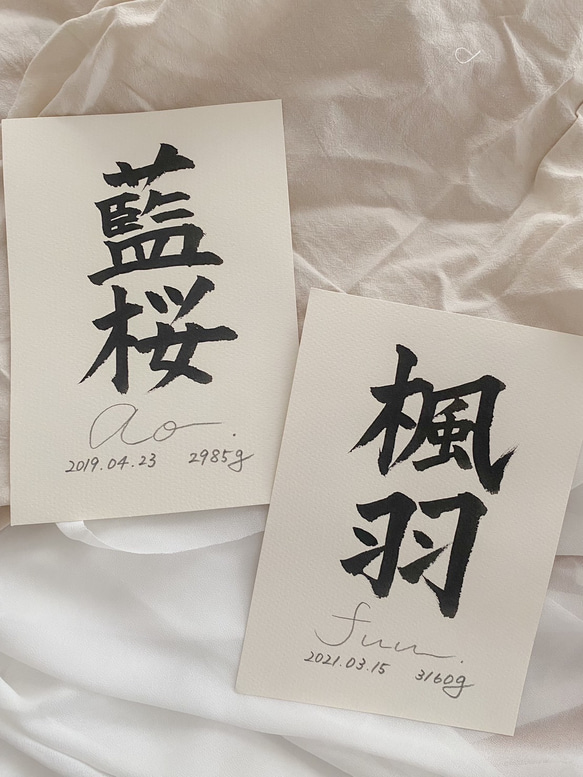 藍桜
ao.
2019.04.23 2985g
楓羽
fuu.
2021.03.15 3160g